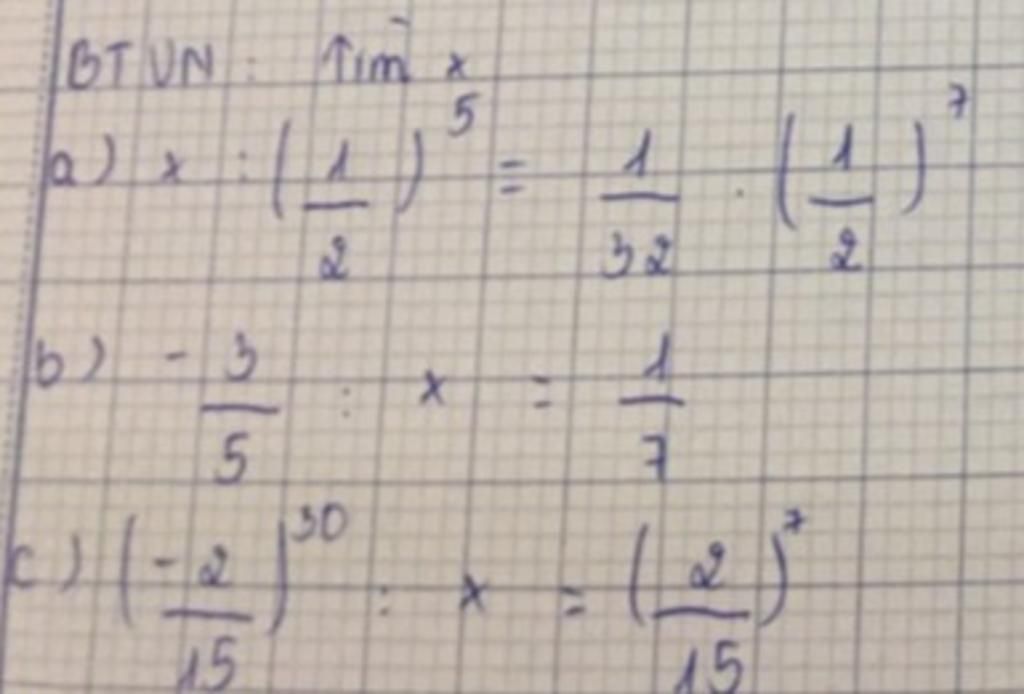 BTVN : Tìm x
a) x : (1/2)^5 = 1/32 . (1/2)^7
b) -3/5 : x = 1/7
c) (-2/15)^30 : x = (2/15)^7